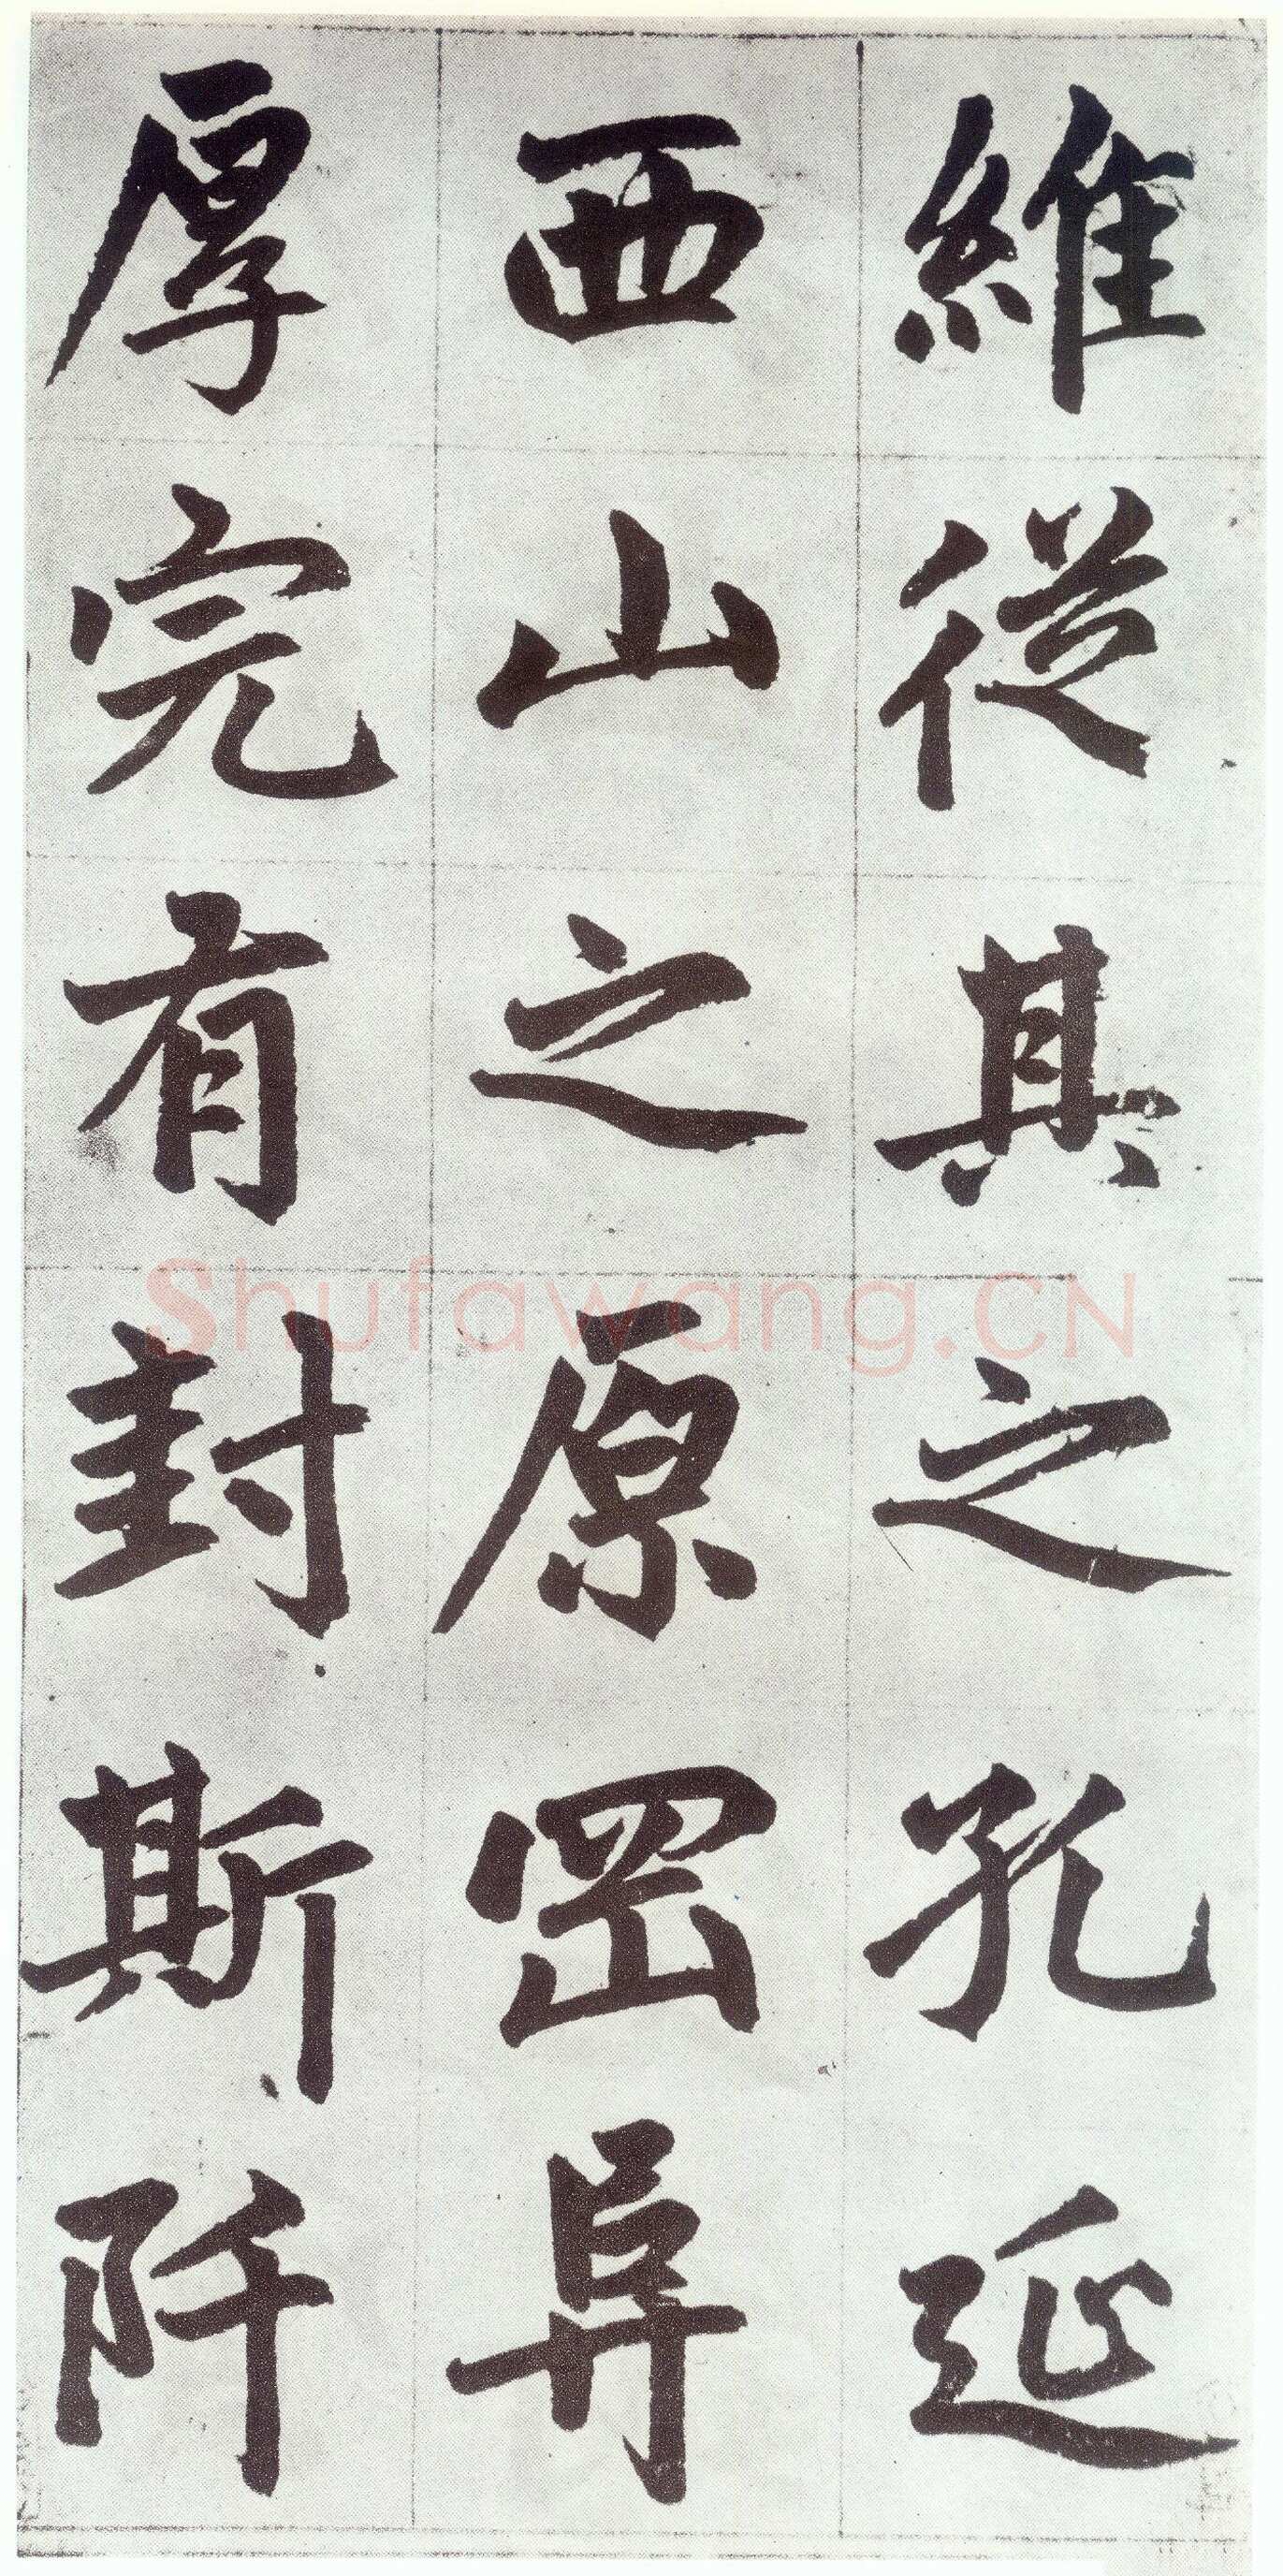 維從其之孔延
西山之原罡阜
厚完有封斯阡
Shufawang.CN